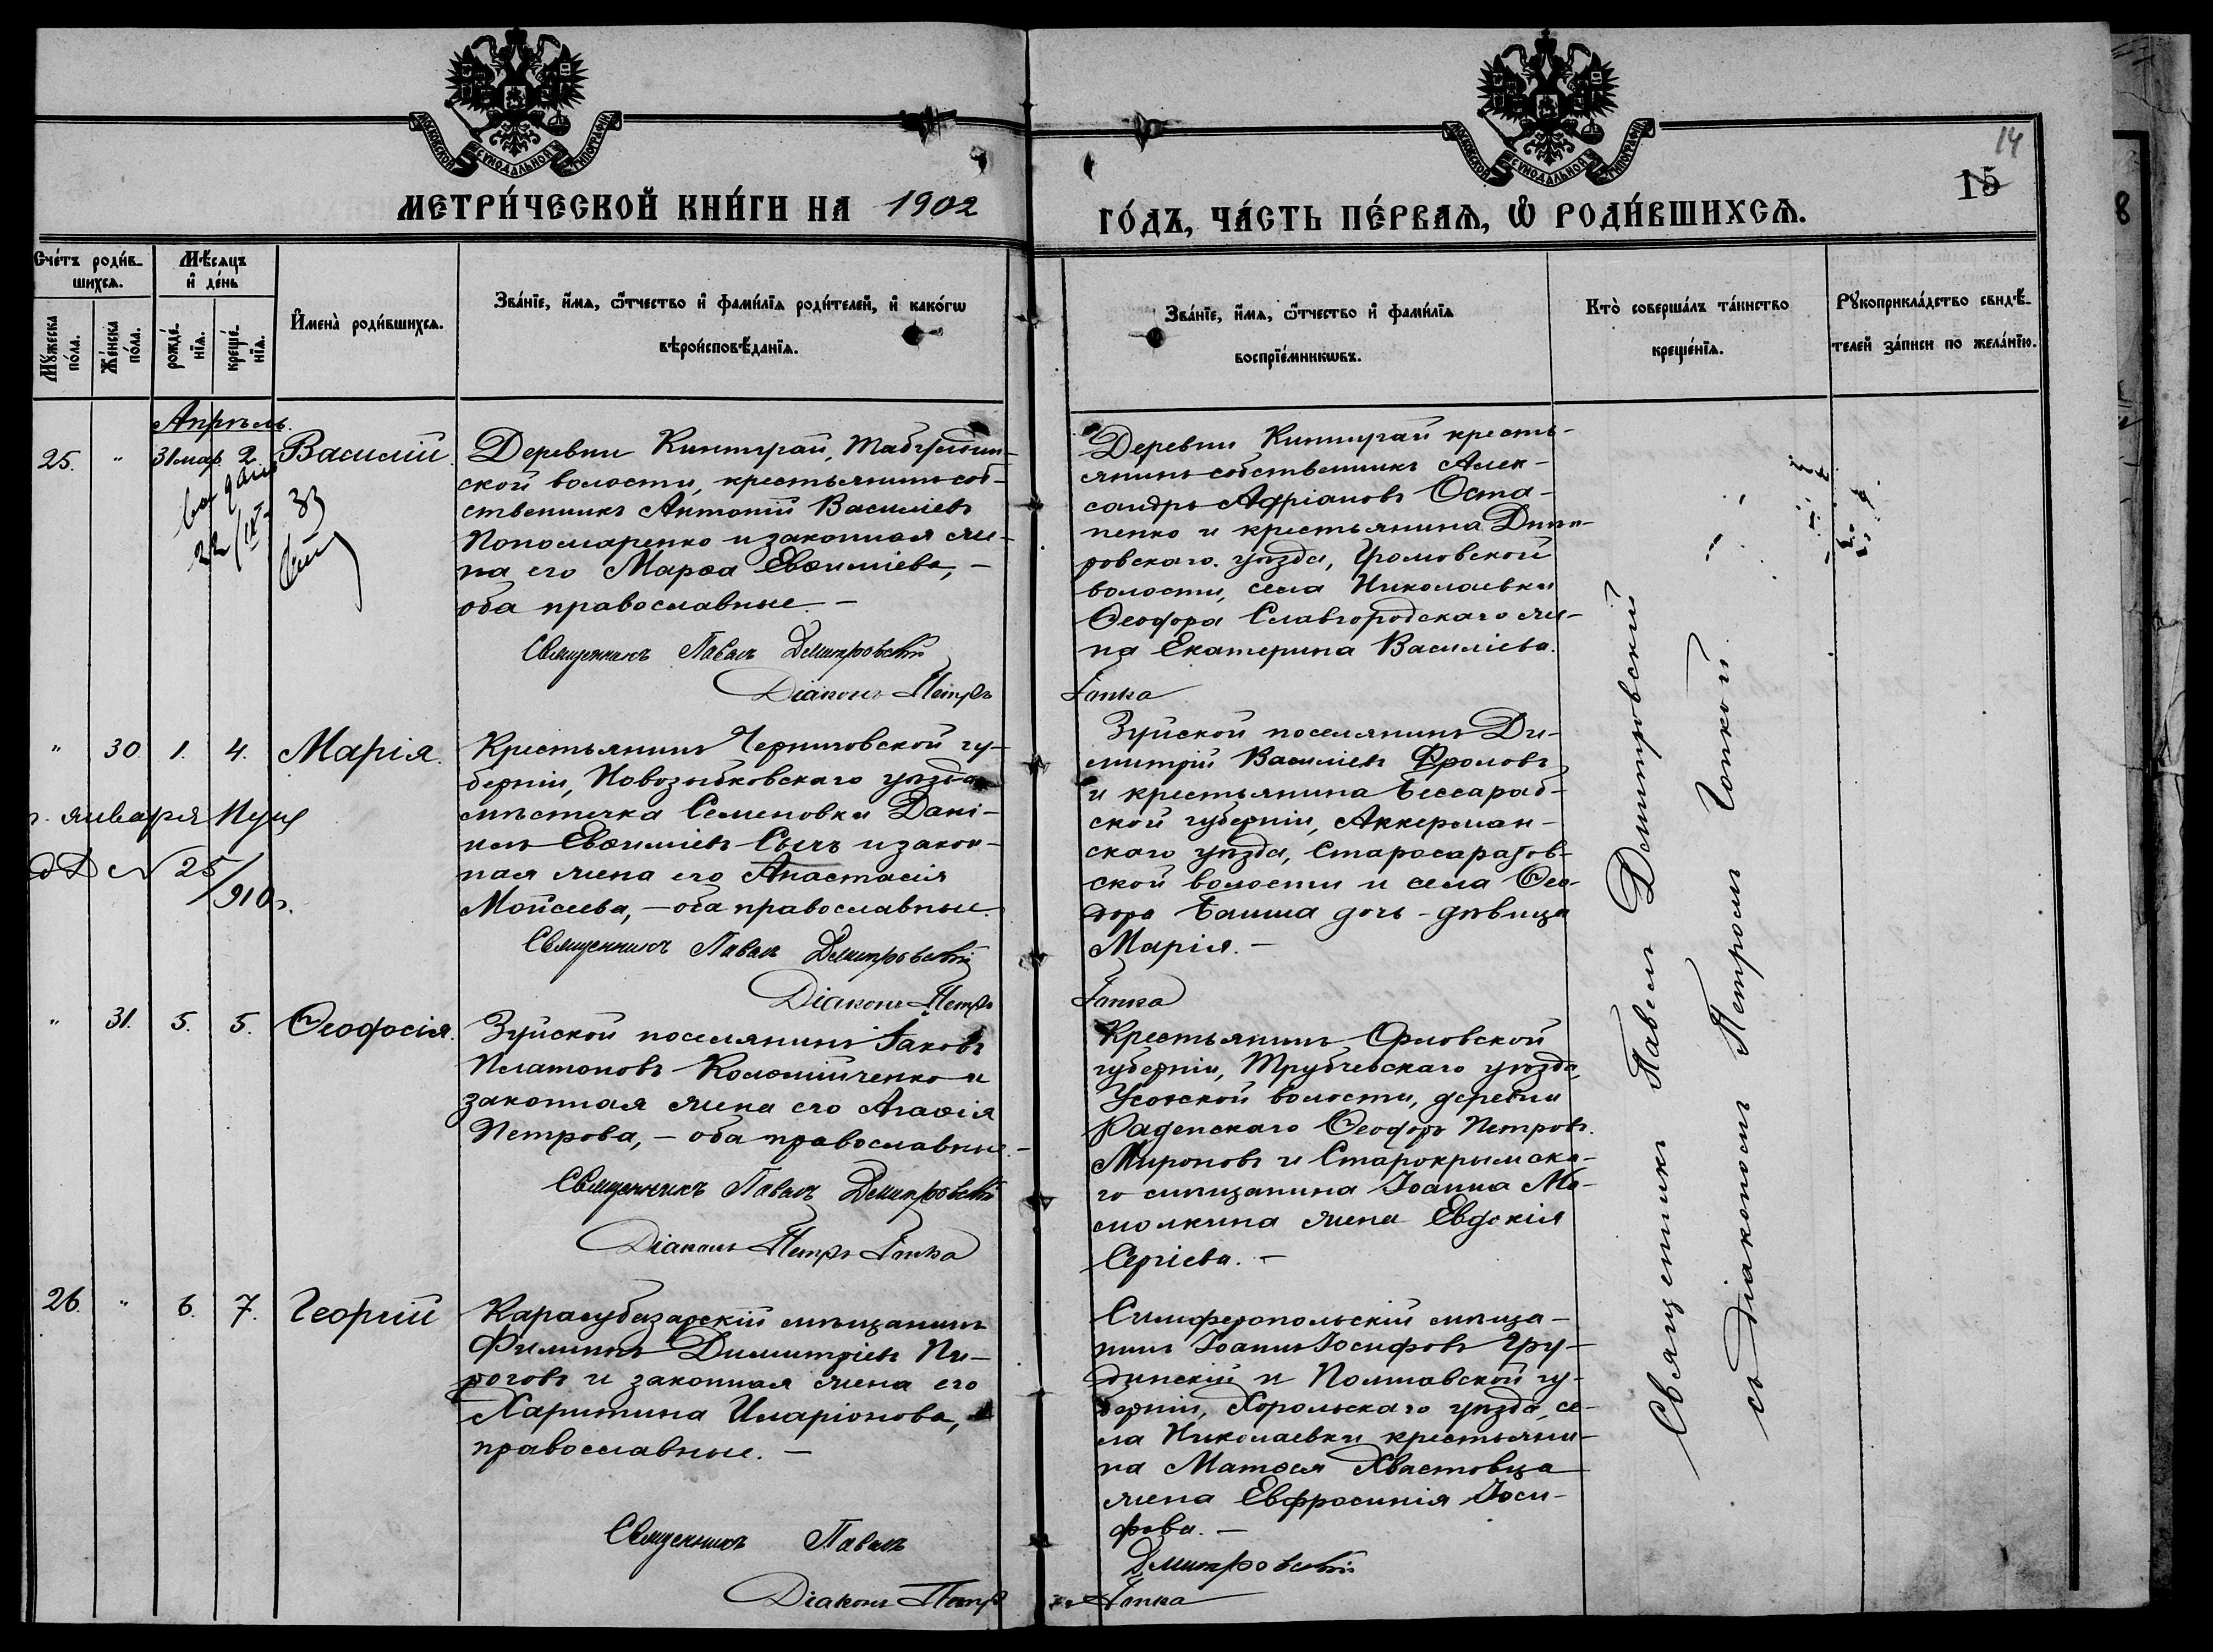 МОСКОВСКОЙ СѴНОДАЛЬНОЙ ТИПОГРАФІИ
МОСКОВСКОЙ СѴНОДАЛЬНОЙ ТИПОГРАФІИ
14
15
8
МЕТРИ́ЧЕСКОЙ КНИ́ГИ НА 1902
ГО́ДЪ, ЧА́СТЬ ПЕ́РВАѦ, Ѡ҆ РОДИ́ВШИХСѦ.
Сче́тъ роди́в-
шихсѧ.
Мꙋ́жеска по́ла.
Же́нска по́ла.
Мѣ́сѧцъ
и҆ де́нь
рожде́-
нїѧ.
креще́-
нїѧ.
И҆мена̀ роди́вшихсѧ.
Зва́нїе, и҆́мѧ, ѻ҆́тчество и҆ фами́лїѧ роди́телей, и҆ како́гѡ
вѣроисповѣ́данїѧ.
Зва́нїе, и҆́мѧ, ѻ҆́тчество и҆ фами́лїѧ
воспрїе́мникѡвъ.
Кто̀ соверша́лъ та́инство
креще́нїѧ.
Рꙋкоприкла́дство свидѣ́-
телей за́писи по жела́нїю.
Апрѣль.
25. " 31 мар. 2. Василій.
22/IX
33
Деревни Кипчугай, Табулдин-
ской волости, крестьянинъ соб-
ственникъ Антоній Василіевъ
Пономаренко и законная же-
на его Марѳа Евѳиміева, –
оба православные. –
Священникъ Павелъ Дмитровскій
Діаконъ Петръ
Деревни Кипчугай кресть-
янинъ собственникъ Алек-
сандръ Адріановъ Оста-
пенко и крестьянина Днѣп-
ровскаго уѣзда, Громовской
волости, села Николаевки
Ѳеодора Славгородскаго же-
на Екатерина Василіева.
Гопка
" 30. 1. 4. Марія.
января
№ 25
/910 г.
Крестьянинъ Черниговской гу-
берніи, Новозыбковскаго уѣзда
мѣстечка Семеновки Дані-
илъ Евѳиміевъ Сычъ и закон-
ная жена его Анастасія
Моисеева, – оба православные.
Священникъ Павелъ Дмитровскій
Діаконъ Петръ
Зуйской поселянинъ Ди-
митрій Василіевъ Фроловъ
и крестьянина Бессараб-
ской губерніи, Аккерман-
скаго уѣзда, Старосаратов-
ской волости и села Ѳео-
дора Баина дочь – дѣвица
Марія. –
Гопка
" 31. 5. 5. Ѳеодосія.
Зуйской поселянинъ Іаковъ
Платоновъ Коломійченко и
законная жена его Агаѳія
Петрова, – оба православные. –
Священникъ Павелъ Дмитровскій
Діаконъ Петръ Гопка
Крестьянинъ Орловской
губерніи, Трубчевскаго уѣзда,
Усохской волости, деревни
Раденскаго Ѳеодоръ Петровъ
Мироновъ и Старокрымска-
го мѣщанина Іоанна Ма-
молкина жена Евдокія
Сергіева. –
26. " 6. 7. Георгій
Карасубазарскій мѣщанинъ
Филиппъ Димитріевъ Пи-
роговъ и законная жена его
Харитина Иларіонова,
православные. –
Священникъ Павелъ
Діаконъ Петръ
Симферопольскій мѣща-
нинъ Іоаннъ Іосифовъ Гру-
динскій и Полтавской гу-
берніи, Хорольскаго уѣзда, се-
ла Николаевки крестьяни-
на Матѳея Хвастовца
жена Евфросинія Іоси-
фова. –
Дмитровскій
Гопка
Священникъ Павелъ Дмитровскій
съ діакономъ Петромъ Гопкой.